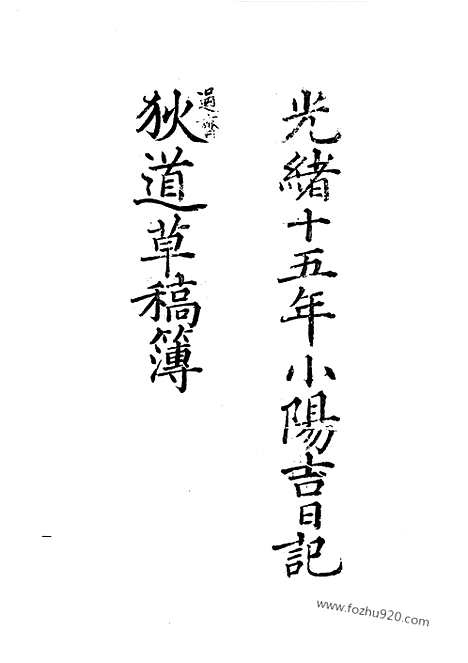 光緒十五年小陽吉日記
過齋
狄道草稿簿
一
www.fozhu920.com